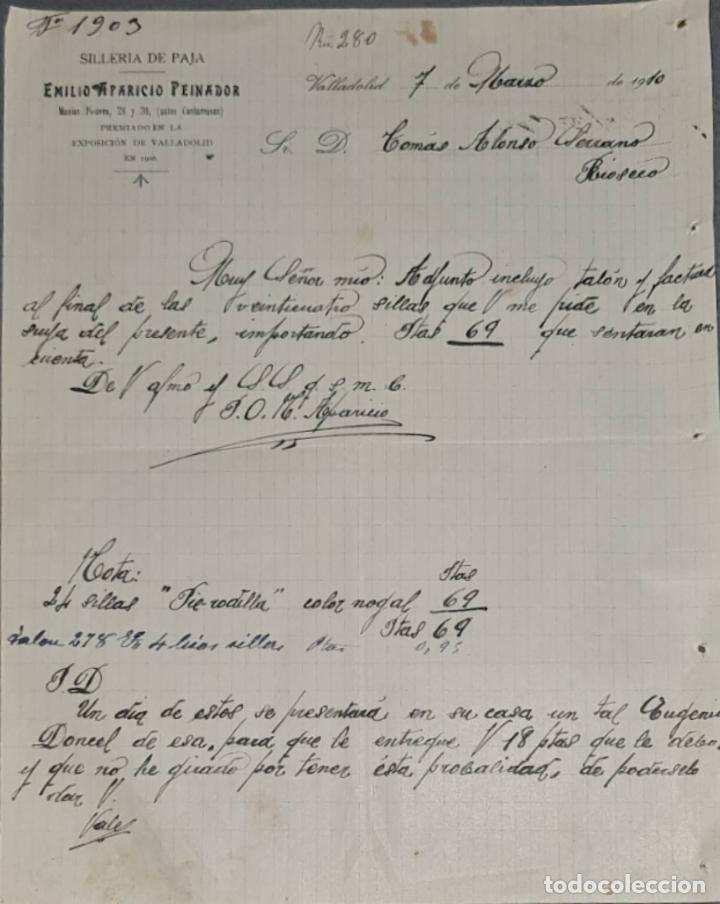 1903
Nú 280
SILLERÍA DE PAJA
EMILIO APARICIO PEINADOR
28 y 30, (antes Cantarranas)
PREMIADO EN LA
EXPOSICIÓN DE VALLADOLID
EN 1906.
Valladolid 7 de Marzo de 1910
Sr. D. Tomás Alonso Serrano
Rioseco
Muy Señor mío: Adjunto incluyo talón y factura
al final de las veinticuatro sillas que V me pide en la
suya del presente, importando Ptas 69 que sentaran en
cuenta.
De V afmo y S S q. s. m. b.
P.O. M. Aparicio
Nota: Ptas
24 sillas "Pie-rodilla" color nogal 69
Ptas 69
talon 278 4 lios sillas Ptas 0,95
P D
Un dia de estos se presentará en su casa un tal Eugenio
Doncel de esa, para que le entregue V 18 ptas que le debo
y que no he girado por tener ésta probalidad, de poderselo
dar V.
Vale
todocoleccion.net